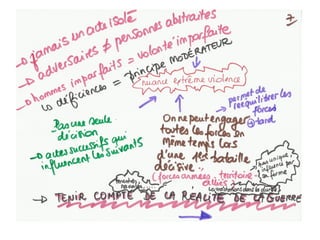 7
→ jamais un acte isolé
→ adversaires ≠ personnes abstraites
→ hommes imparfaits = volonté imparfaite
↳ déficiences = principe MODÉRATEUR
nuance extrême violence
→ permet de
rééquilibrer les
forces
+ tard
Pas une seule
décision
→ actes successifs qui
influencent les suivants
On ne peut engager
toutes les forces en
même temps lors
d'une 1ère bataille
décisive
(forces armées, territoire
alliés)
→ TENIR COMPTE DE LA RÉALITÉ DE LA GUERRE